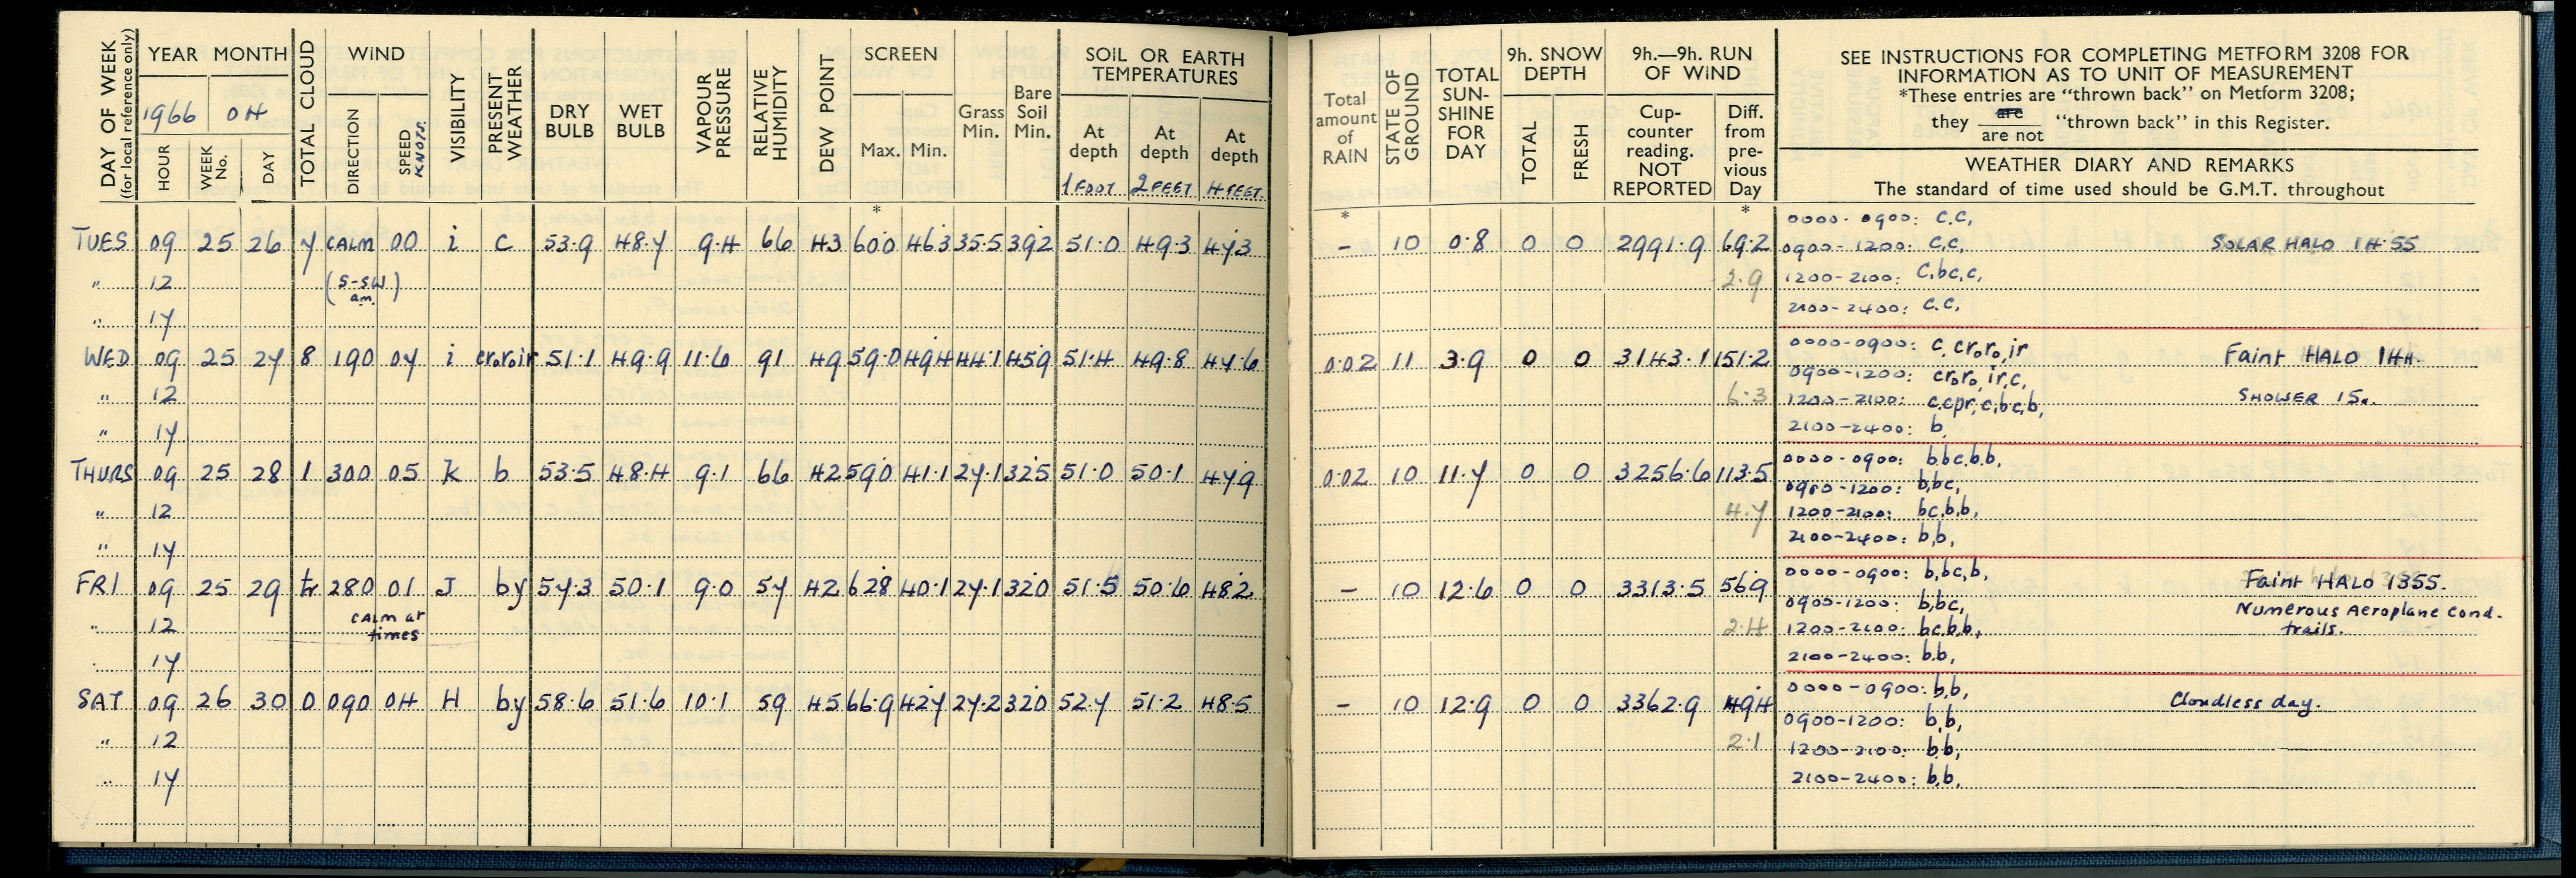 DAY OF WEEK (for local reference only)
YEAR MONTH
1966 04
HOUR WEEK No. DAY
TOTAL CLOUD
WIND
DIRECTION SPEED KNOTS.
VISIBILITY
PRESENT WEATHER
DRY BULB
WET BULB
VAPOUR PRESSURE
RELATIVE HUMIDITY
DEW POINT
SCREEN
Max. Min.
Grass Min.
Bare Soil Min.
SOIL OR EARTH TEMPERATURES
At depth 1 FOOT
At depth 2 FEET
At depth 4 FEET.
*
TUES 09 25 26 7 CALM 00 i c 53.9 48.7 9.4 66 43 60.0 46.3 35.5 39.2 51.0 49.3 47.3
" 12 (S-SW am.)
" 17
WED 09 25 27 8 190 07 i croroir 51.1 49.9 11.6 91 49 59.0 49.4 44.1 45.9 51.4 49.8 47.6
" 12
" 17
THURS 09 25 28 1 300 05 K b 53.5 48.4 9.1 66 42 59.0 41.1 27.1 32.5 51.0 50.1 47.9
" 12
" 17
FRI 09 25 29 tr 280 01 J by 57.3 50.1 9.0 57 42 62.8 40.1 27.1 32.0 51.5 50.6 48.2
" 12 CALM at times
" 17
SAT 09 26 30 0 090 04 H by 58.6 51.6 10.1 59 45 66.9 42.7 27.2 32.0 52.7 51.2 48.5
" 12
" 17
Total amount of RAIN
STATE OF GROUND
TOTAL SUN-SHINE FOR DAY
9h. SNOW DEPTH
TOTAL FRESH
9h.—9h. RUN OF WIND
Cup-counter reading. NOT REPORTED
Diff. from pre-vious Day
SEE INSTRUCTIONS FOR COMPLETING METFORM 3208 FOR
INFORMATION AS TO UNIT OF MEASUREMENT
*These entries are "thrown back" on Metform 3208;
they are / are not "thrown back" in this Register.
WEATHER DIARY AND REMARKS
The standard of time used should be G.M.T. throughout
* *
0000-0900: c.c,
- 10 0.8 0 0 2991.9 69.2 0900-1200: c,c, SOLAR HALO 14.55
2.9 1200-2100: c,bc,c,
2100-2400: c.c,
0000-0900: c, croro,ir
0.02 11 3.9 0 0 3143.1 151.2 Faint HALO 144.
0900-1200: croro, ir,c,
6.3 1200-2100: c.cpr,c,bc,b, SHOWER 15..
2100-2400: b,
0000-0900: b,bc,b.b,
0.02 10 11.7 0 0 3256.6 113.5
0900-1200: b,bc,
4.7 1200-2100: bc,b.b,
2100-2400: b,b,
0000-0900: b,bc,b,
- 10 12.6 0 0 3313.5 56.9 Faint HALO 1355.
0900-1200: b,bc, Numerous Aeroplane Cond.
2.4 1200-2100: bc,b.b, trails.
2100-2400: b.b,
0000-0900: b,b,
- 10 12.9 0 0 3362.9 49.4 Cloudless day.
0900-1200: b,b,
2.1 1200-2100: b,b,
2100-2400: b,b,